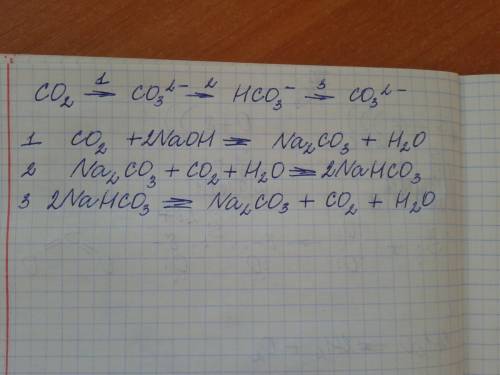 CO₂ →¹ CO₃²⁻ →² HCO₃⁻ →³ CO₃²⁻
1 CO₂ + 2NaOH = Na₂CO₃ + H₂O
2 Na₂CO₃ + CO₂ + H₂O = 2NaHCO₃
3 2NaHCO₃ = Na₂CO₃ + CO₂ + H₂O